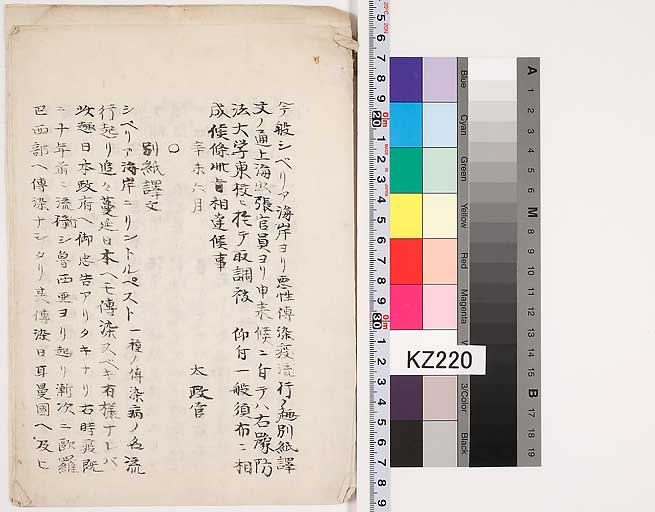 今般シベリア海岸ヨリ悪性傳染疫流行ノ趣別紙譯
文ノ通上海出張官員ヨリ申来候ニ付テハ右豫防
法大学東校ニ於テ取調被 仰付一般須布ニ相
成候條此旨相達候事
辛未六月
太政官
○
別紙譯文
シベリア海岸ニリントルペスト一種ノ傳染病ノ名流
行起リ追々蔓延日本ヘモ傳染スベキ有様ナレバ
此趣日本政府ヘ御忠告アリタキナリ右時疫既
ニ十年前ニ流行シ魯西亜ヨリ起リ漸次ニ歐羅
巴西部ヘ傳染ナシタリ其傳染日耳曼國ヘ及ヒ
5 6 7 8 9 20 1 2 3 4 5 6 7 8 9 30 1 2 3 4 5 6 7 8 9
Blue
Cyan
Green
Yellow
Red
Magenta
W
3/Color
Black
KZ220
A
1
2
3
4
5
6
M
8
9
10
11
12
13
14
15
B
17
18
19